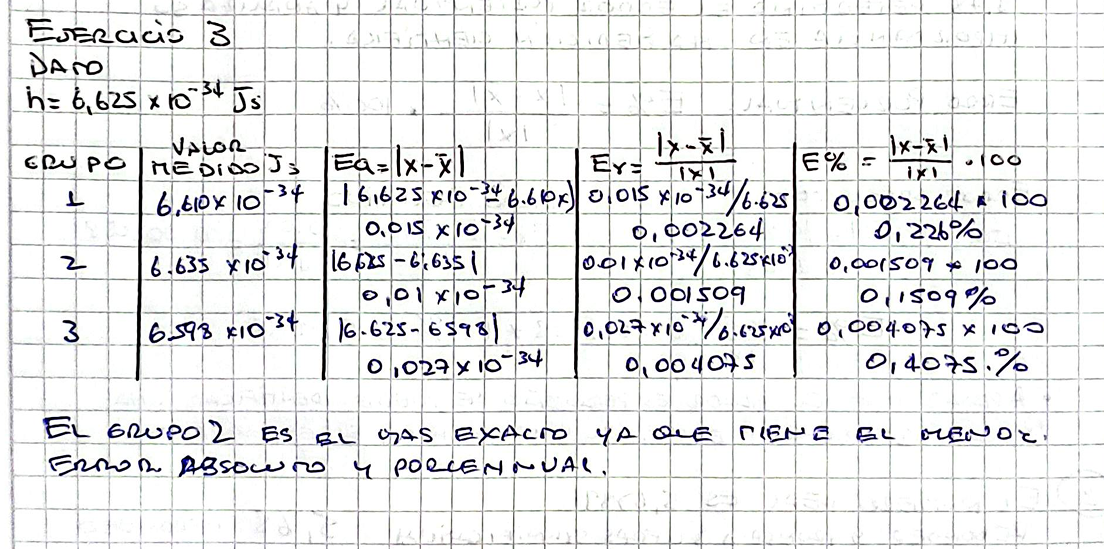 EJERCICIO 3
DATO
h= 6,625 × 10⁻³⁴ Js
GRUPO | VALOR MEDIDO Js | Ea= |x-x̄| | Er= |x-x̄| / |x| | E% = |x-x̄| / |x| · 100
1 | 6,610 × 10⁻³⁴ | |6,625 × 10⁻³⁴ - 6.610x| | 0,015 × 10⁻³⁴/6.625 | 0,002264 * 100
0,015 × 10⁻³⁴ | 0,002264 | 0,226%
2 | 6.635 × 10⁻³⁴ | |6,625 - 6,635| | 0.01 × 10⁻³⁴/6.625×10 | 0,001509 * 100
0,01 × 10⁻³⁴ | 0.001509 | 0,1509%
3 | 6.598 × 10⁻³⁴ | |6.625 - 6598| | 0,027 × 10⁻³⁴/6.625×10 | 0,004075 × 100
0,027 × 10⁻³⁴ | 0,004075 | 0,4075.%
EL GRUPO 2 ES EL MAS EXACTO YA QUE TIENE EL MENOR
ERROR ABSOLUTO Y PORCENNUAL.